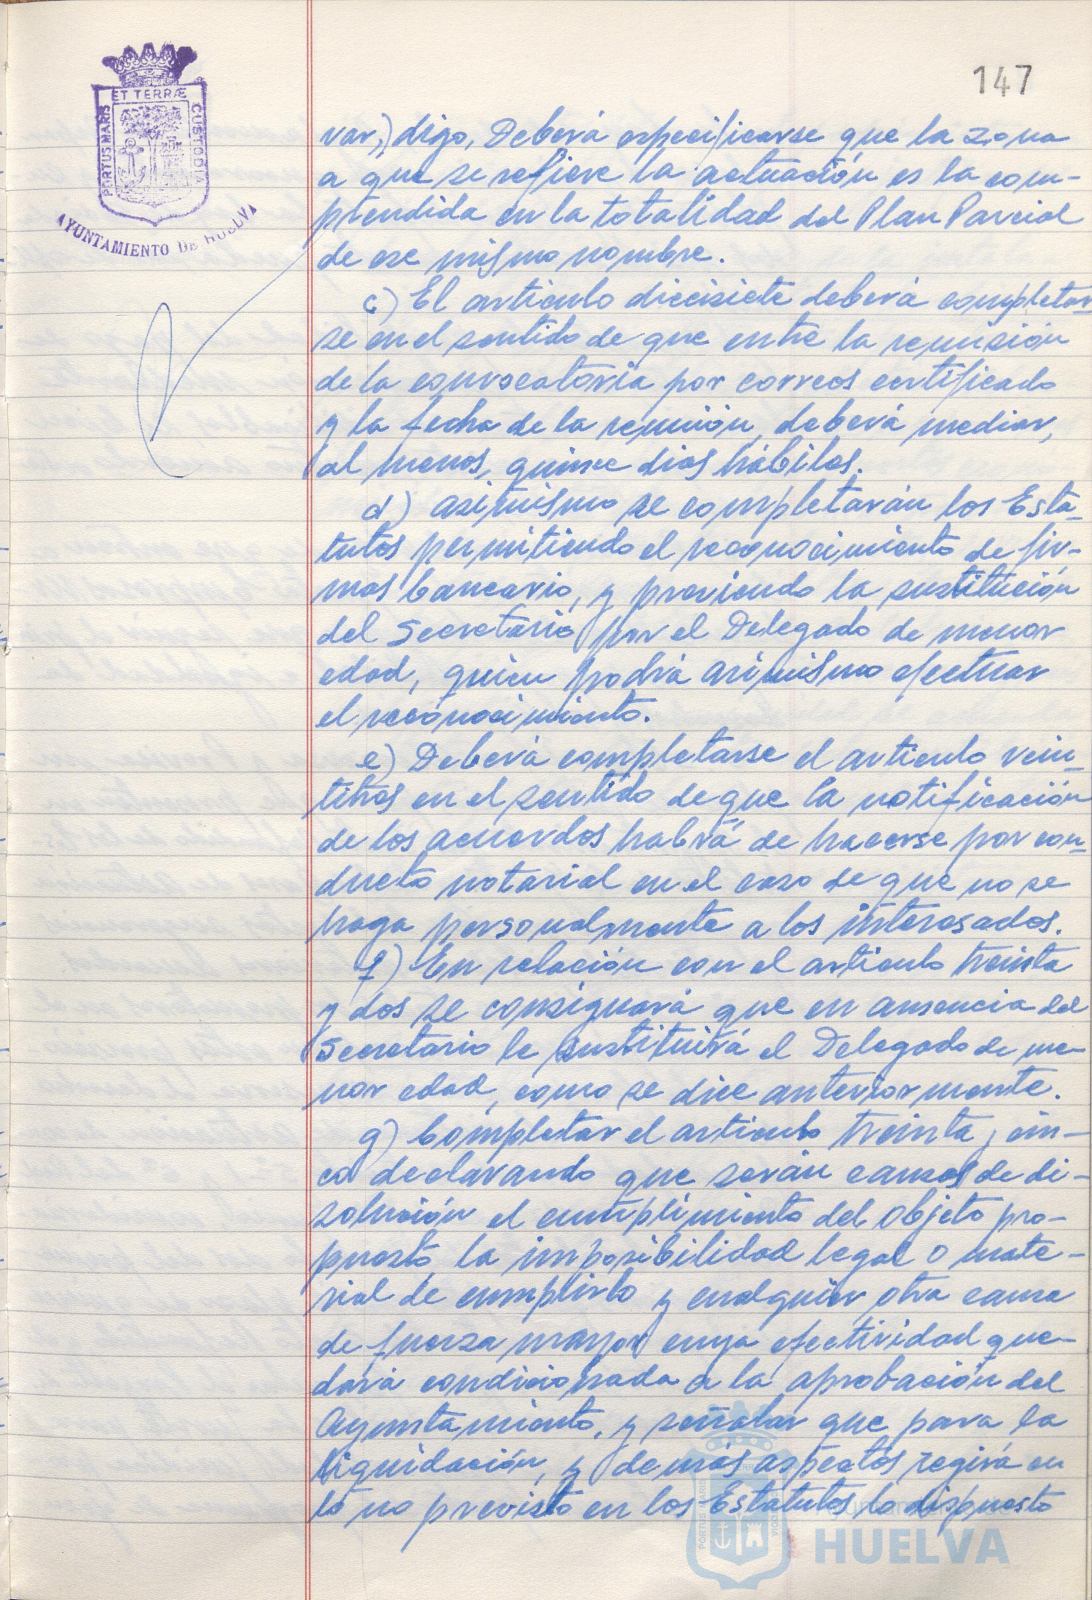 147
PORTUS MARIS
ET TERRÆ
CUSTODIA
AYUNTAMIENTO DE HUELVA
var,) digo, Deberá especificarse que la zona
a que se refiere la actuación es la com-
prendida en la totalidad del Plan Parcial
de ese mismo nombre.
c) El artículo diecisiete deberá completar
se en el sentido de que entre la remisión
de la convocatoria por correos certificado
y la fecha de la reunión, deberá mediar,
al menos, quince dias hábiles.
d) asimismo se completarán los Esta-
tutos permitiendo el reconocimiento de fir-
mas bancario, y previendo la sustitución
del Secretario por el Delegado de menor
edad, quien podrá asimismo efectuar
el reconocimiento.
e) Deberá completarse el articulo vein-
titres en el sentido de que la notificación
de los acuerdos habrá de hacerse por con-
ducto notarial en el caso de que no se
haga personalmente a los interesados.
f) En relación con el articulo treinta
y dos se consignará que en ausencia del
Secretario le sustituirá el Delegado de me-
nor edad, como se dice anteriormente.
g) Completar el articulo treinta y cin-
co declarando que serán causas de di-
solución el cumplimiento del objeto pro-
puesto la imposibilidad legal o mate-
rial de cumplirlo y cualquier otra causa
de fuerza mayor cuya efectividad que-
dará condicionada a la aprobación del
Ayuntamiento, y señalar que para la
liquidación, y demás aspectos regirá en
lo no previsto en los Estatutos lo dispuesto
HUELVA